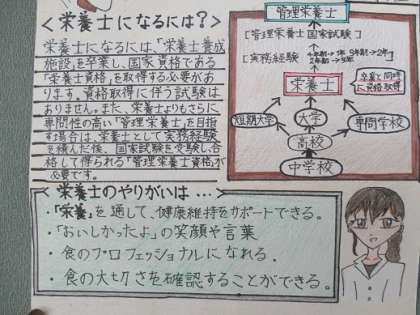 <栄養士になるには?>
栄養士になるには、「栄養士養成
施設」を卒業し、国家資格である
「栄養士資格」を取得する必要があ
ります。資格取得に伴う試験は
ありません。また、栄養士よりもさらに
専門性の高い「管理栄養士」を目指
す場合は、栄養士として実務経験
を積んだ後、国家試験を受験し、合
格して得られる「管理栄養士資格」が
必要です。
管理栄養士
[管理栄養士国家試験]
[実務経験 4年制→1年 3年制→2年
2年制→3年]
栄養士
卒業と同時
に資格取得
短期大学
大学
専門学校
高校
中学校
<栄養士のやりがいは…>
・「栄養」を通して、健康維持をサポートできる。
・「おいしかったよ」の笑顔や言葉
・食のプロフェッショナルになれる。
・食の大切さを確認することができる。